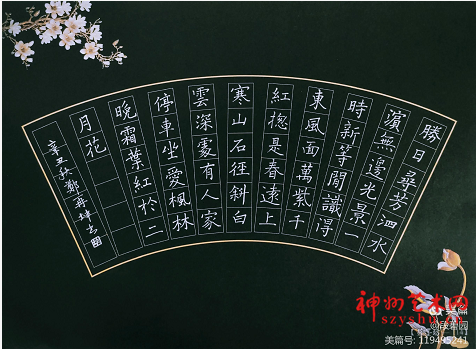 勝日尋芳泗水
濱無邊光景一
時新等閒識得
東風面萬紫千
紅揔是春遠上
寒山石徑斜白
雲深處有人家
停車坐愛楓林
晚霜葉紅於二
月花
辛丑秋鄭
神州艺术网
美篇
美篇号: 119495241